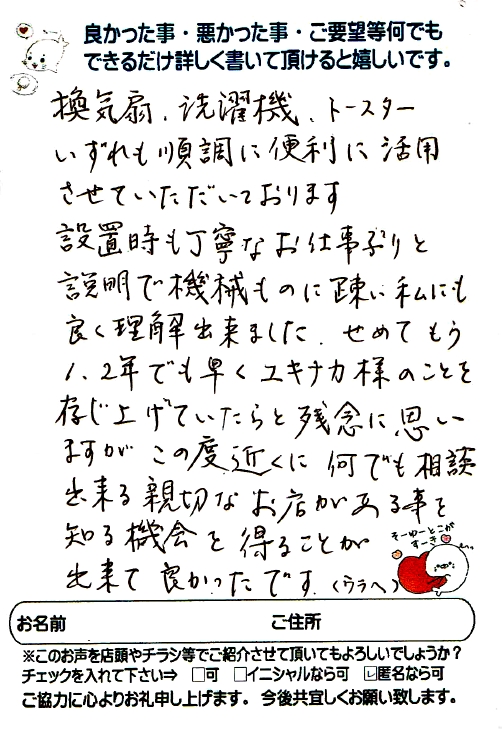 良かった事・悪かった事・ご要望等何でも
できるだけ詳しく書いて頂けると嬉しいです。
換気扇、洗濯機、トースター
いずれも順調に便利に活用
させていただいております
設置時も丁寧なお仕事ぶりと
説明で機械ものに疎い私にも
良く理解出来ました。せめてもう
1、2年でも早くユキナカ様のことを
存じ上げていたらと残念に思い
ますがこの度近くに何でも相談
出来る親切なお店がある事を
知る機会を得ることが
出来て良かったです。(ウラへ)
そーゆーとこが
すーき
お名前 ご住所
※このお声を店頭やチラシ等でご紹介させて頂いてもよろしいでしょうか？
チェックを入れて下さい⇒ □可 □イニシャルなら可 ☑匿名なら可
ご協力に心よりお礼申し上げます。今後共宜しくお願い致します。